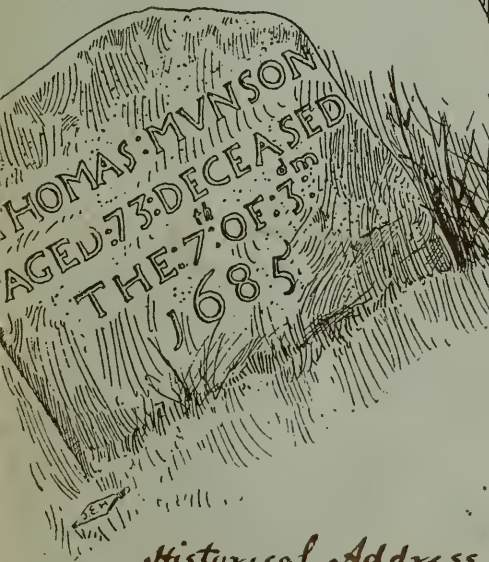 THOMAS:MVNSON
AGED:73:DECEASED
THE:7th:OF:3:dm
1685
J.E.H
Historical Address